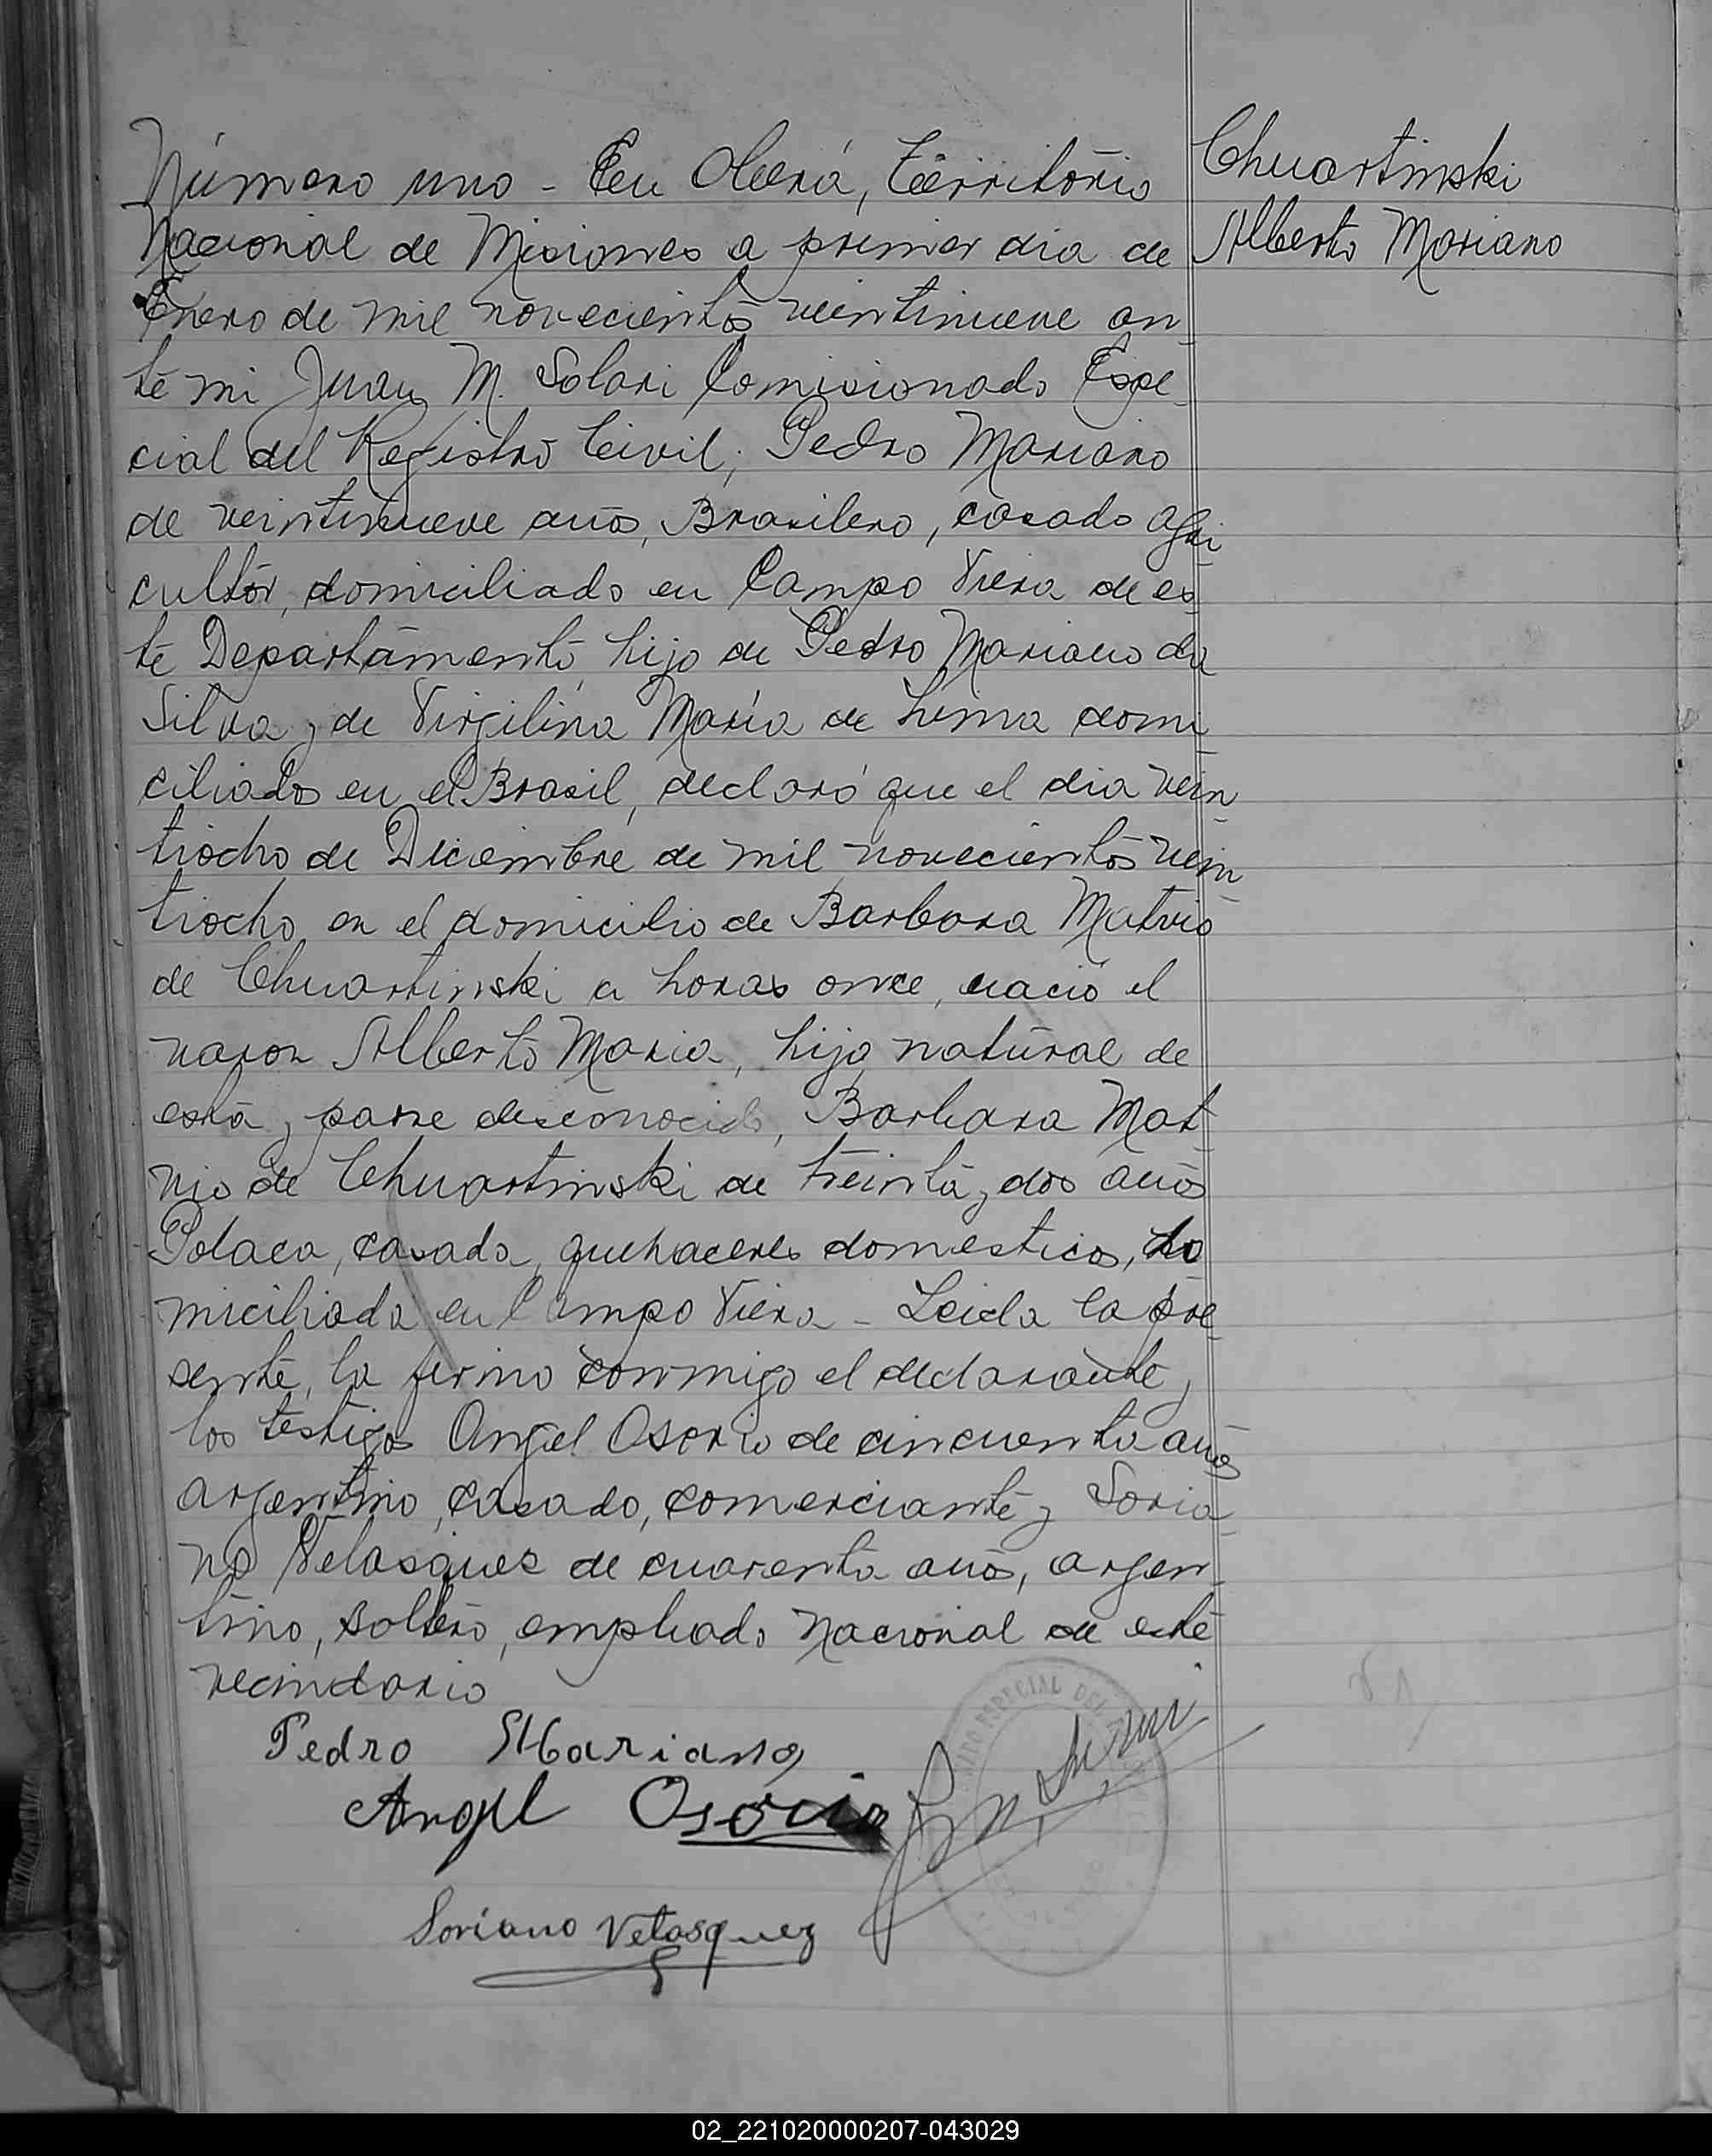 Número uno - En Oberá, Territorio
Nacional de Misiones a primer dia de
Enero de mil novecientos veintinueve an-
te mi Juan M. Solari Comisionado Espe-
cial del Registro Civil; Pedro Mariano
de veintinueve años, Brasilero, casado agri-
cultor, domiciliado en Campo Viera de es-
te Departamento, hijo de Pedro Mariano da
Silva y de Virgilina María de Lima domi-
ciliados en el Brasil, declaró que el dia vein-
tiocho de Diciembre de mil novecientos vein-
tiocho en el domicilio de Barbara
de Chuartinski a horas once, nació el
varon Alberto Maria, hijo natural de
esta y padre desconocido, Barbara
de Chuartinski de treinta y dos años
Polaca, casada, quehaceres domesticos, do
miciliada en Campo Viera - Leida la pre-
sente, la firmó conmigo el declarante y
los testigos Angel Osorio de cincuenta años
argentino, casado, comerciante y Soria-
no Velasquez de cuarenta años, argen-
tino, soltero, empleado Nacional de este
vecindario
Chuartinski
Alberto Mariano
Pedro Mariano
Angel Osorio
Soriano Velasquez
ESPECIAL DEL
02_221020000207-043029